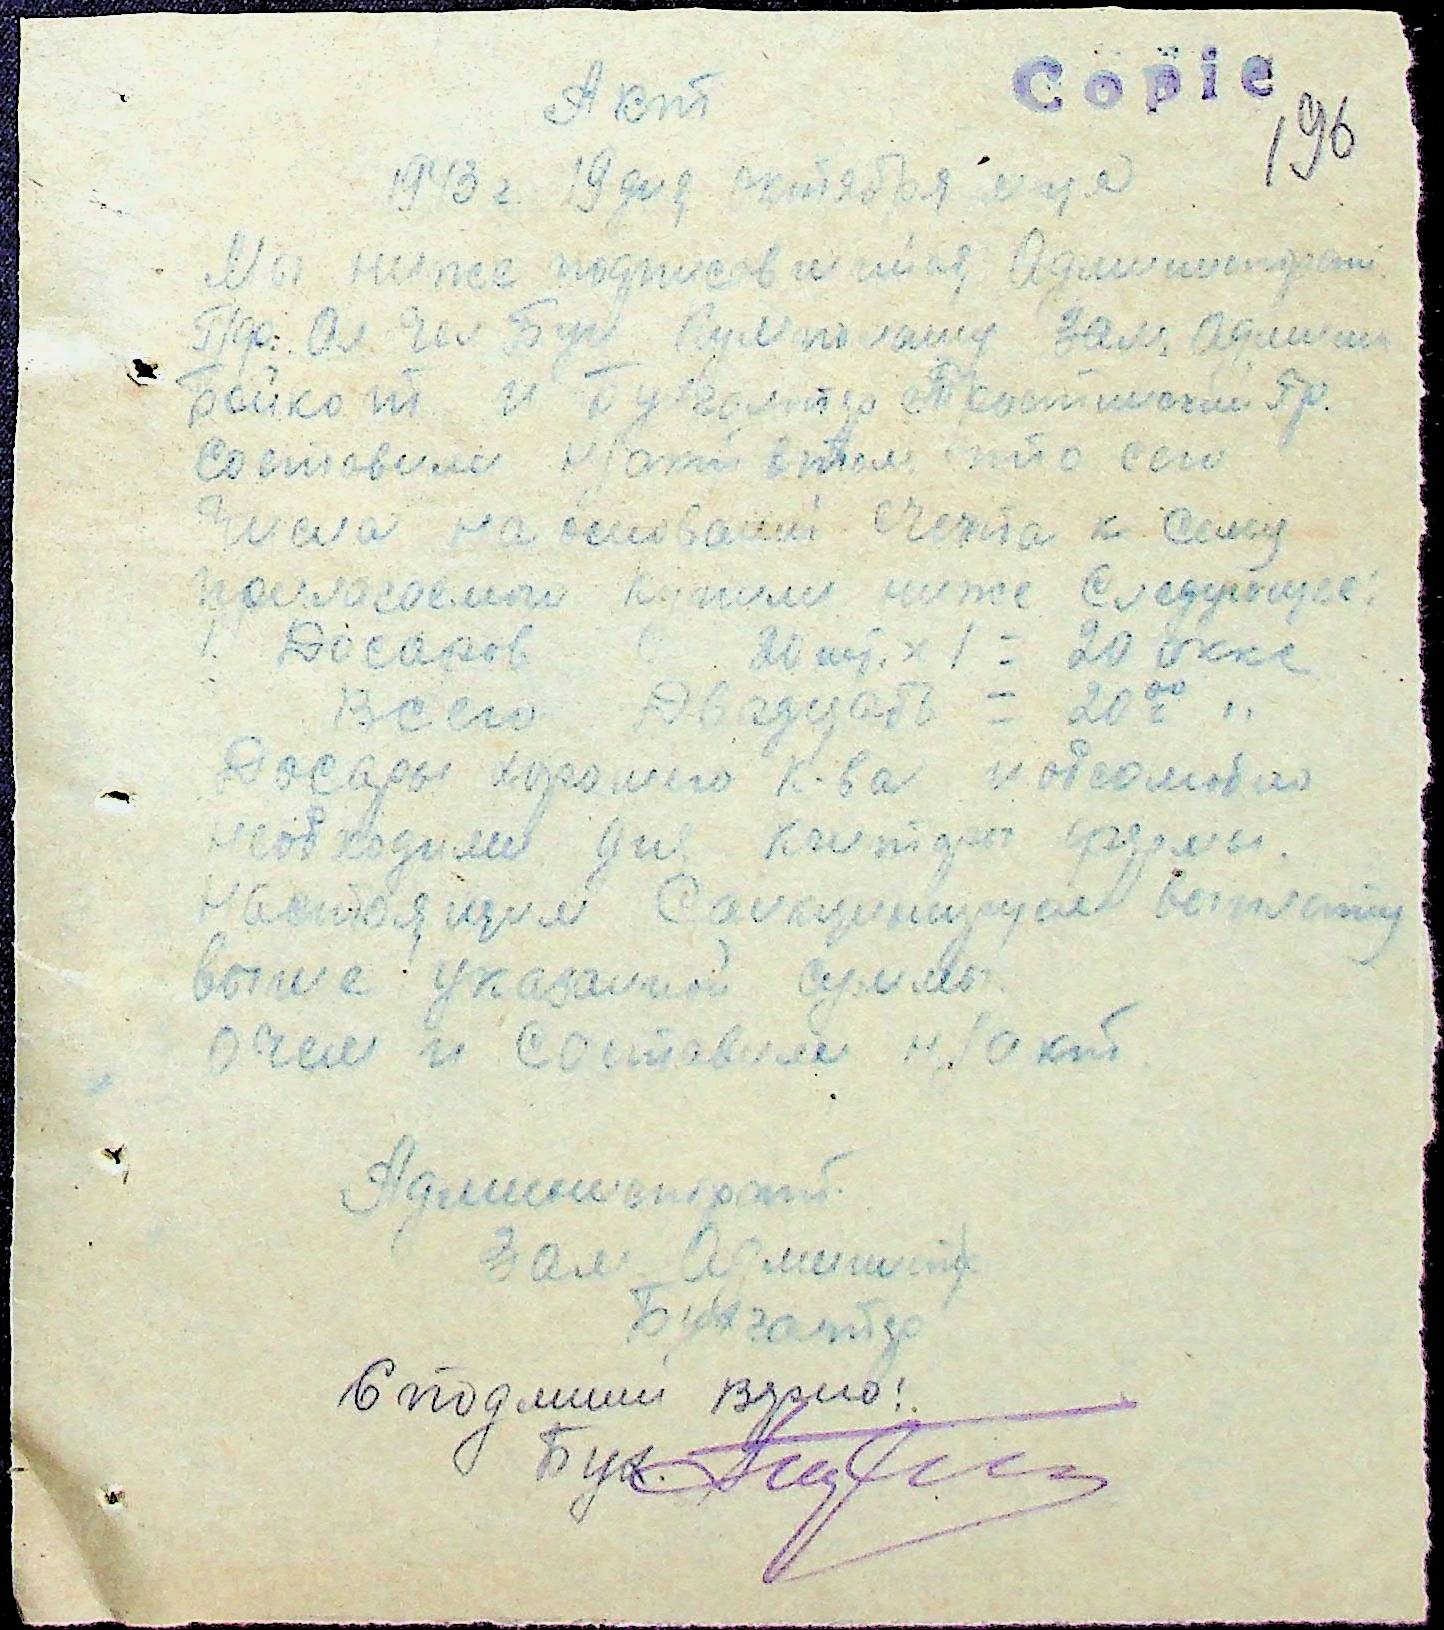 Copie
196
Акт
1943 г. 19 дня октября м-ця
Мы ниже подписавшиеся, Администрат.
Пр. Ал Чел Бун Зам. Админи
Бойко т и Бухгалтер Гр.
составили н/акт в том что сего
Числа на основании счета к сему
прилагаемого купили ниже следующее:
1. Досаров 20 шт. х 1 = 20 окке
Всего Двадцать = 20 00 "
Досары хорошего к-ва и обсолютно
необходими для канторы фермы.
Настоящим Санкционируем выплату
выше указанной суммы.
о чем и составили н/акт
Администрат.
Зам. Админист
Бухгалтер
С подлиним верно!
Бух.